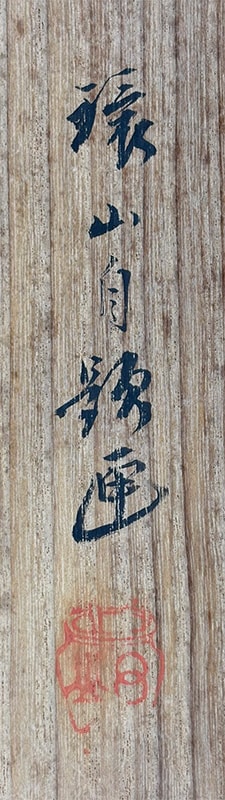 環山自題匣